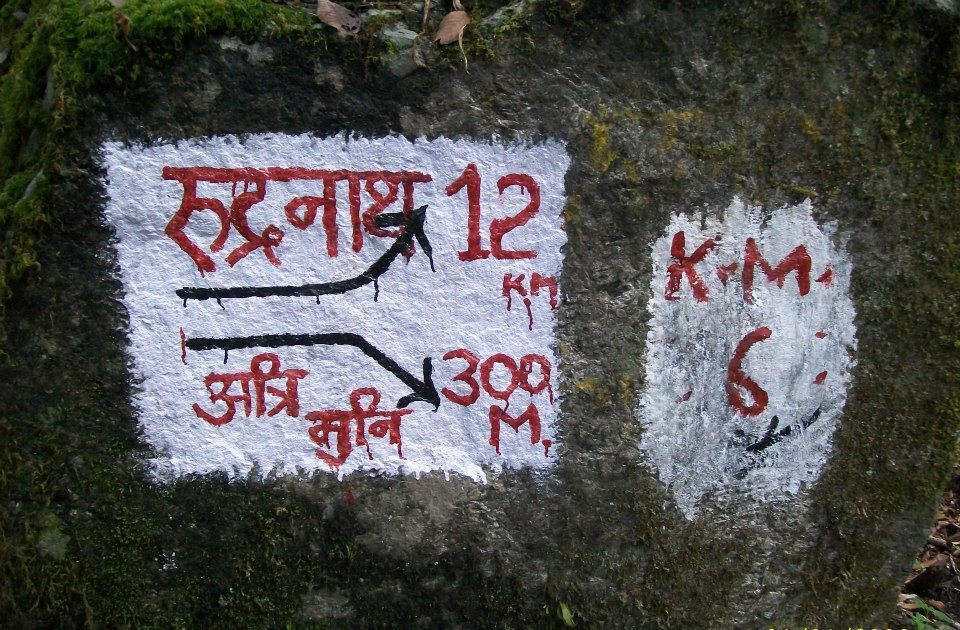 रुद्रनाथ 12
KM
अत्रि 300
मुनि M.
K.M.
6